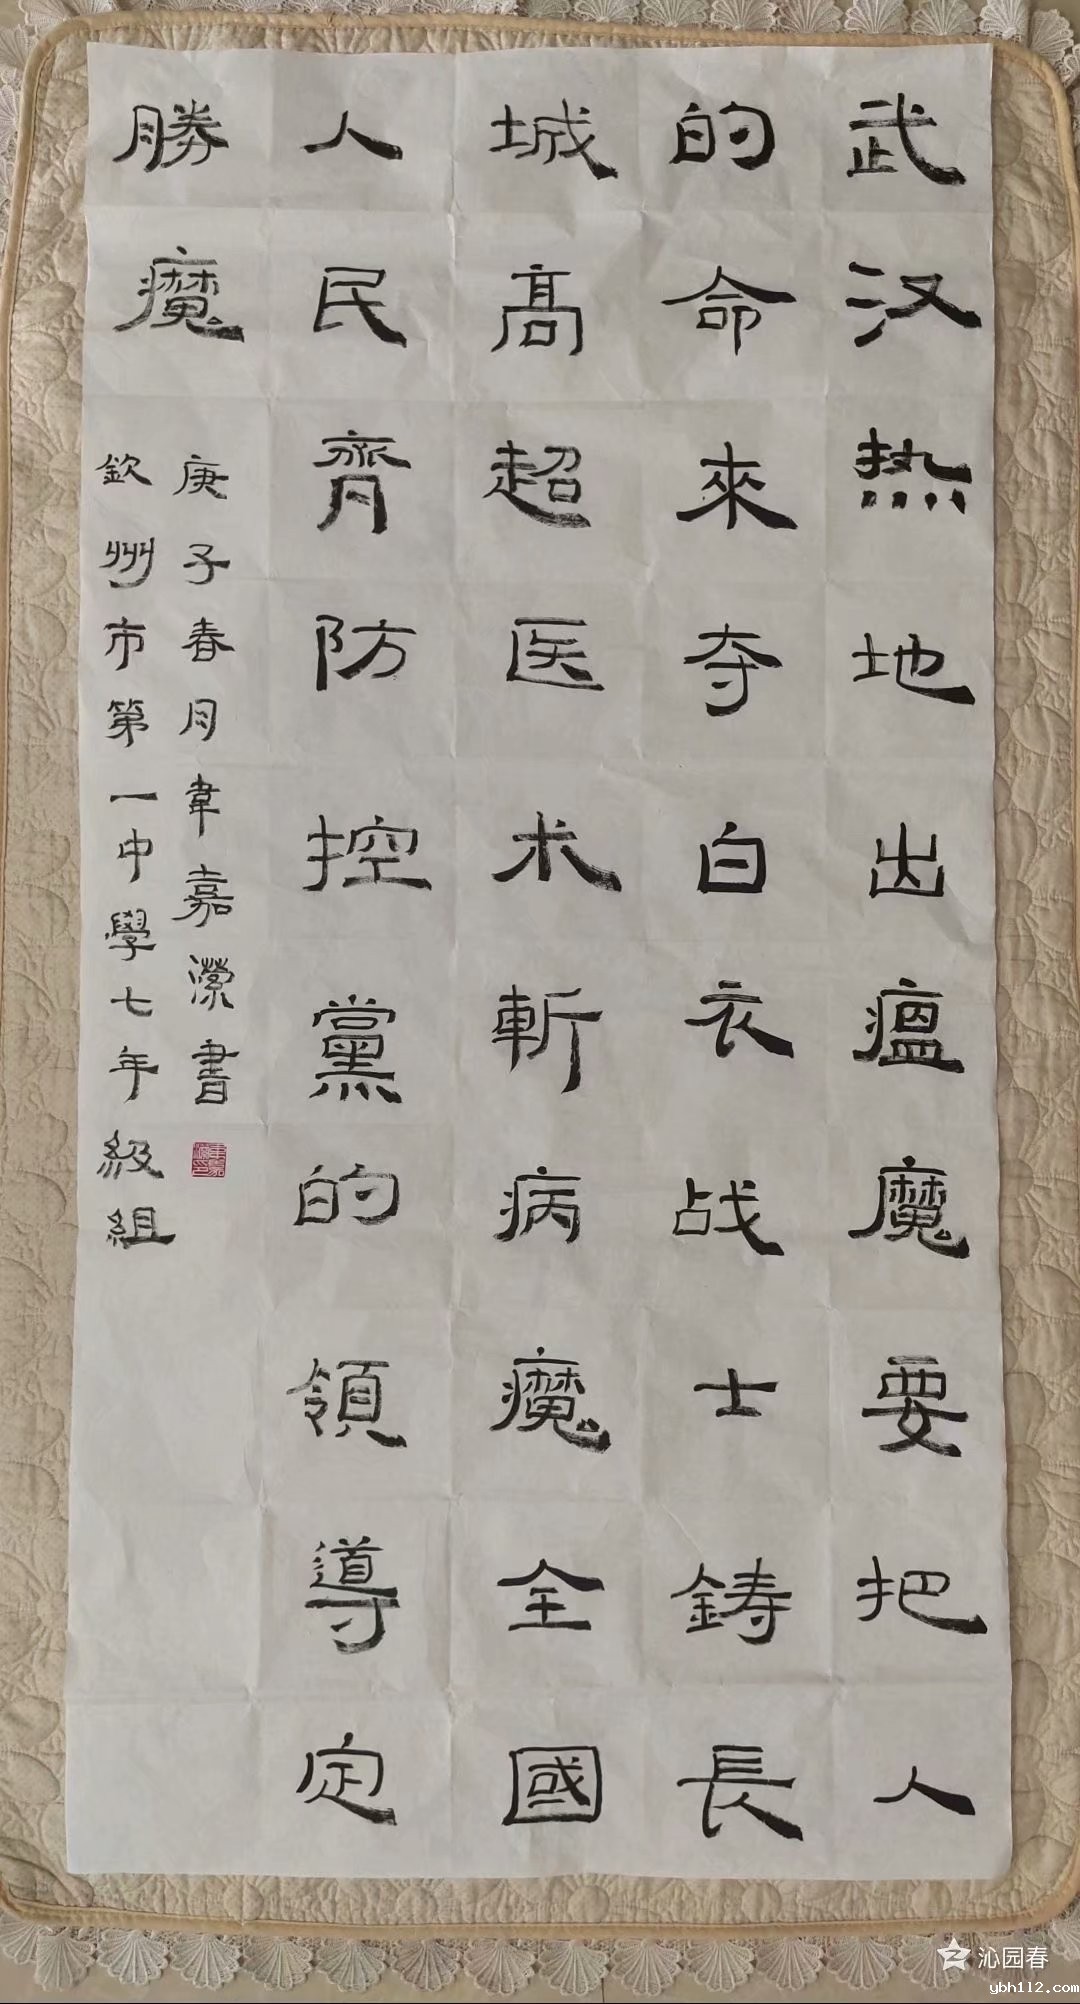 武汉热地出瘟魔要把人
的命来夺白衣战士鋳長
城高超医术斬病魔全國
人民齊防控黨的領導定
勝魔
庚子春月韋嘉瀠書
欽州市第一中學七年級組
沁园春
ybh112.com